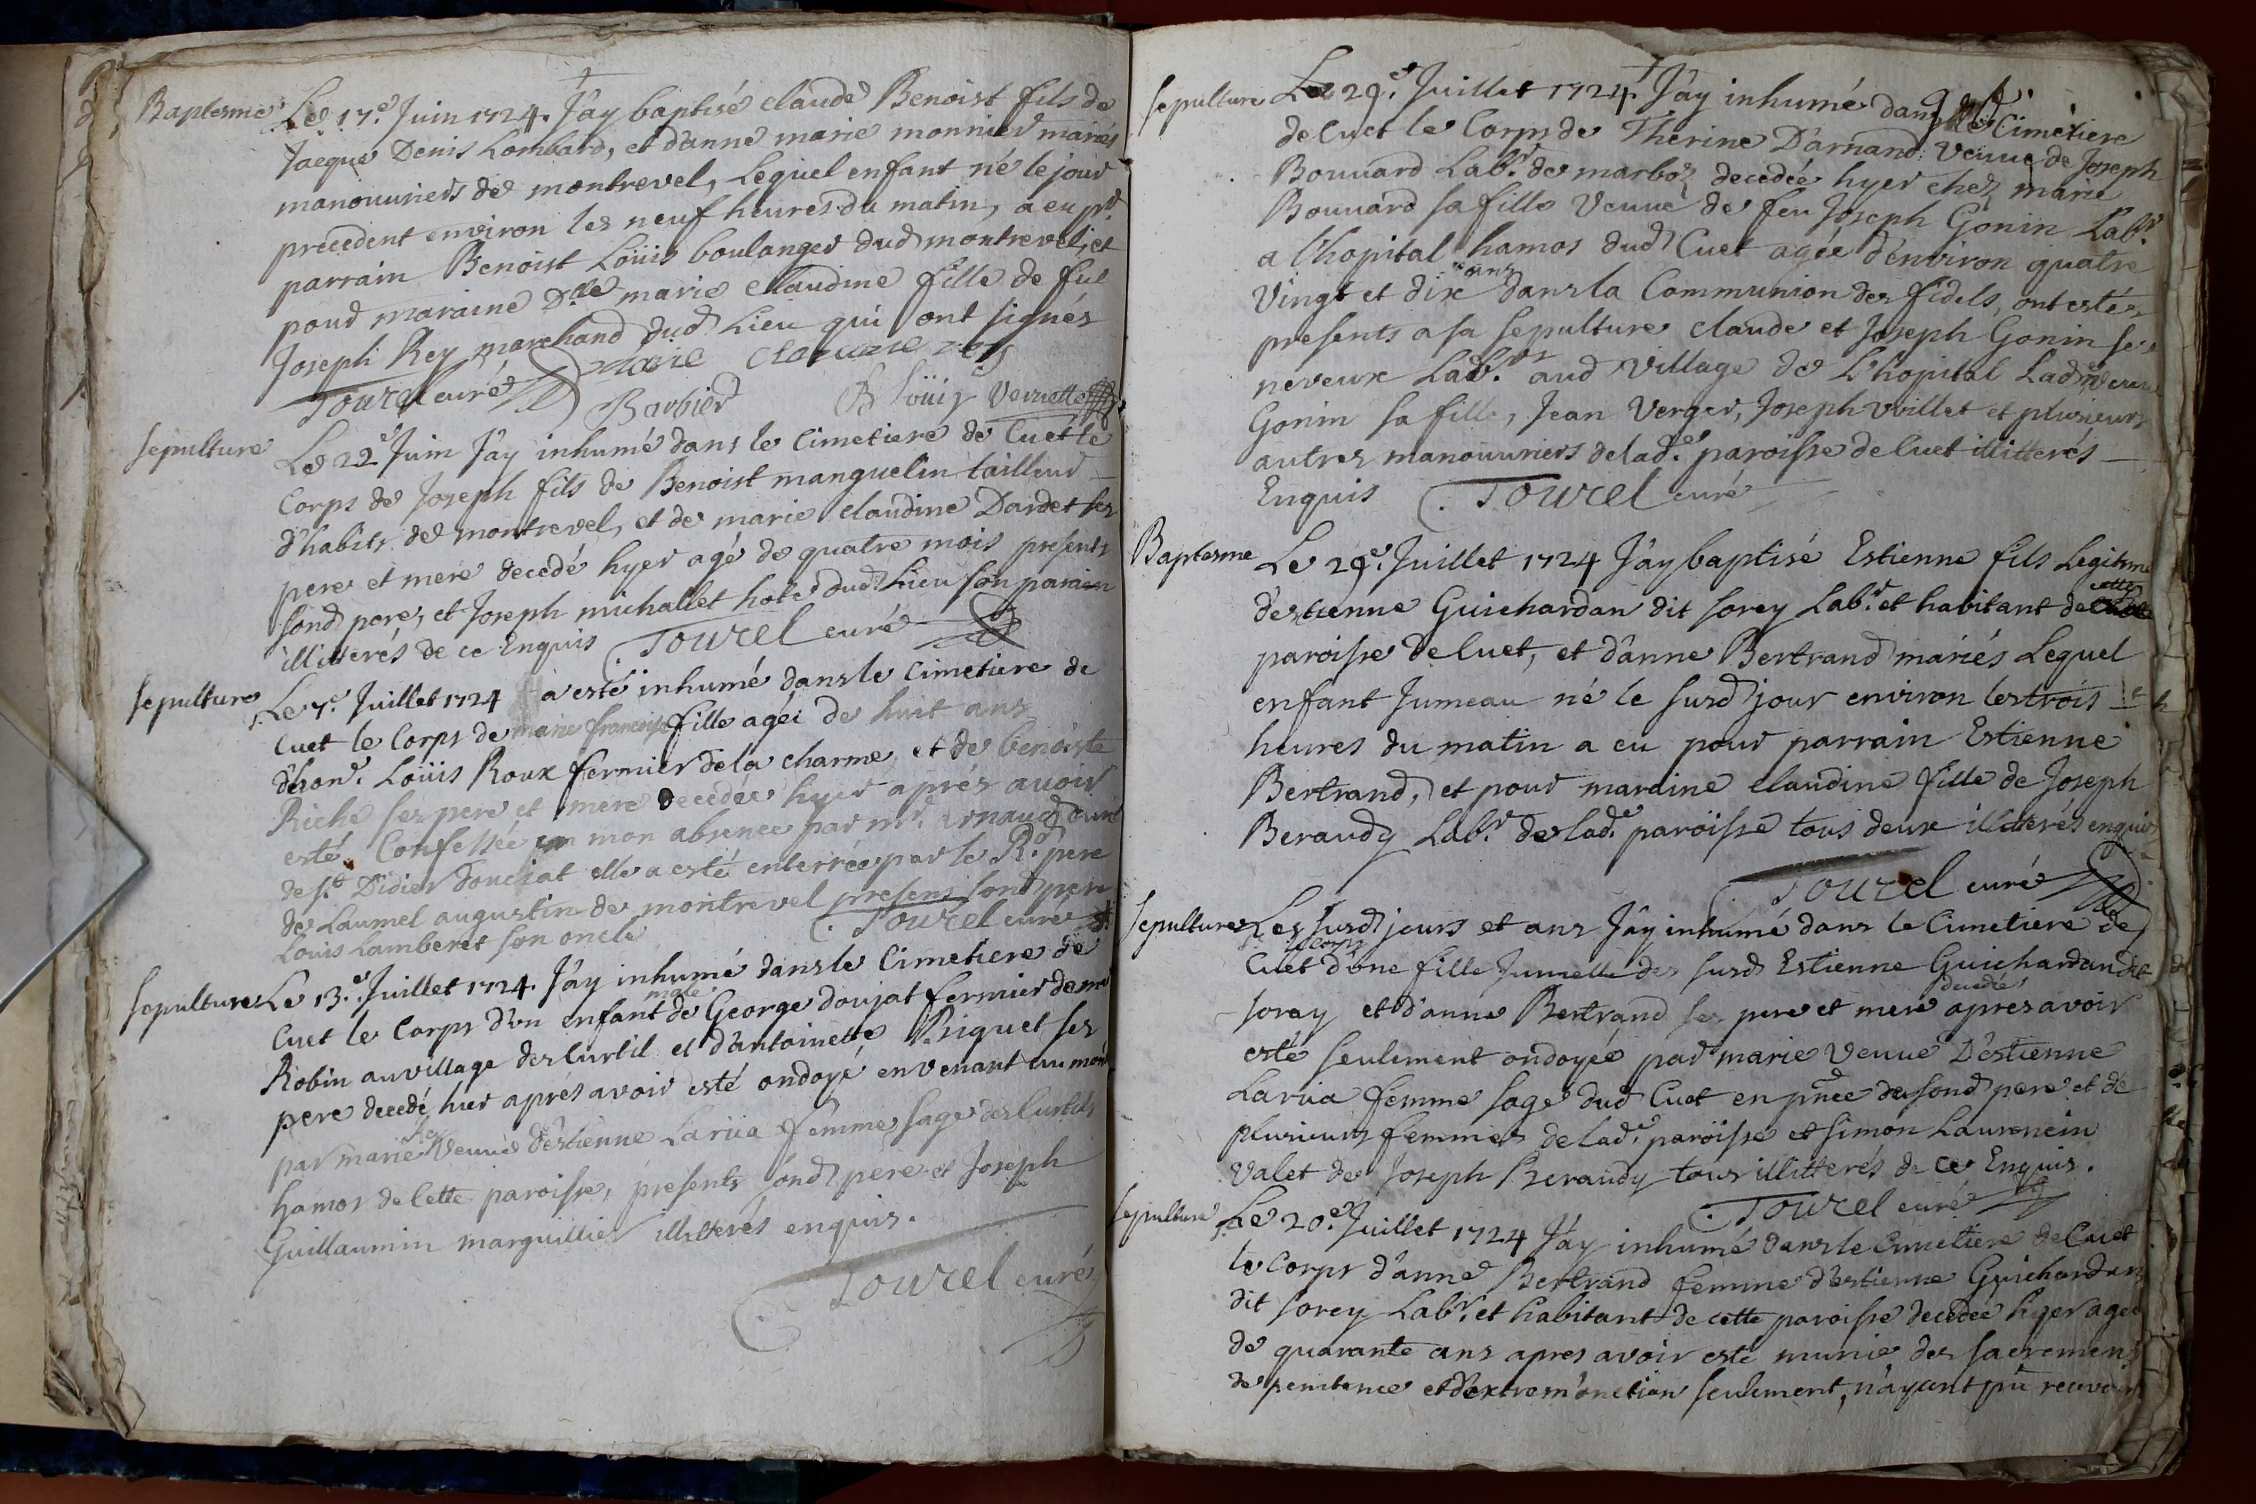 Baptesme Le 17.e Juin 1724. J'ay baptisé claude Benoist fils de
Jacque Denis Lombard, et d'anne marie monnier mariés
manouuriers de montrevel, Lequel enfant né le jour
precedent environ les neuf heures du matin, a eu pr
parrain Benoist Loüis boulanger dud montrevel, et
pour maraine D.lle marie Claudine fille de feu
Joseph Rey marchand dud Lieu qui ont signés
Tourel curé marie Claudine rey
Barbier B Loüis Verruette
sepulture Le 22.e Juin J'ay inhumé dans le Cimetiere de Cuet le
Corps de Joseph fils de Benoist manguelin tailleur
d'habits de montrevel, et de marie claudine Dardet ses
pere et mere decedé hyer agé de quatre mois presents
sond pere, et Joseph michallet hote dud. Lieu son parain
illitterés de ce Enquis Tourel curé
sepulture Le 7.e Juillet 1724 a esté inhumé dans le Cimetiere de
Cuet le Corps de marie francoise fille agéé de huit ans
d'hon.e Loüis Roux fermier de la charme et de benoiste
Riche ses pere et mere decedée hyer aprés avoir
esté Confessée en mon absence par mr. arnaud curé
de st. Didier doucjat elle a esté enterrée par le Rd. pere
de Laumel augustin de montrevel presens sond pere
Louis Lamberet son oncle Tourel curé
sepulture Le 13.e Juillet 1724. J'ay inhumé dans le Cimetiere de
Cuet le Corps d'un enfant male de George doujat fermier de mr
Robin au village des Curtil et d'antoinette Riguet ses
pere decedé hier aprés avoir esté ondoyé en venant au mon
par marie veuue d'estienne Larüa femme sage des Curtils
hamos de Cette paroisse, presents sond pere et Joseph
Guillaumin marguillier illitterés enquis.
Tourel curé
sepulture Le 29.e Juillet 1724. J'ay inhumé dans le Cimetiere
de Cuet le Corps de Therine D'arnand veuue de Joseph
Bouuard Lab.r de marboz decedée hyer chez marie
Bouuard sa fille Veuue de feu Joseph Gonin Lab.r
a l'hopital hamos dud Cuet agée d'environ quatre
Vingt et dix ans dans la Communion des fidels, ont estés
presents a sa sepulture claude et Joseph Gonin ses
neveux Lab.rs aud Village de L'hopital Lad veuue
Gonin sa fille, Jean Verger, Joseph Vuillet et plusieurs
autres manouuriers de lad.e paroisse de Cuet illitterés
Enquis Tourel curé
Baptesme Le 29.e Juillet 1724 J'ay baptisé Estienne fils Legitime
d'estienne Guichardan dit sorey Lab.r et habitant de cette
paroisse de Cuet, et d'anne Bertrand mariés Lequel
enfant Jumeau né le susd jour environ les trois
heures du matin a eu pour parrain Estienne
Bertrand, et pour maraine claudine fille de Joseph
Beraudy Lab.r de lad.e paroisse tous deux illitterés enquis
Tourel curé
sepulture Les susd jours et ans J'ay inhumé dans le Cimetiere de
Cuet le corps d'une fille Jumelle des susd Estienne Guichardan dit
soray et d'anne Bertrand ses pere et mere decedée apres avoir
esté seulement ondoyée par marie veuue D'estienne
Larüa femme sage dud Cuet en pnce de sond pere et de
plusieurs femmes de lad.e paroisse et simon Laurencin
valet de Joseph Beraudy tous illitterés de ce Enquis.
Tourel curé
sepulture Le 20.e Juillet 1724 J'ay inhumé dans le Cimetiere de Cuet
le Corps d'anne Bertrand femme d'estienne Guichardan
dit sorey Lab.r et habitant de cette paroisse decedée hyer agée
de quarante ans apres avoir esté munie des sacremens
de penitence et d'extrem'onction seulement, n'ayant pû recevoir